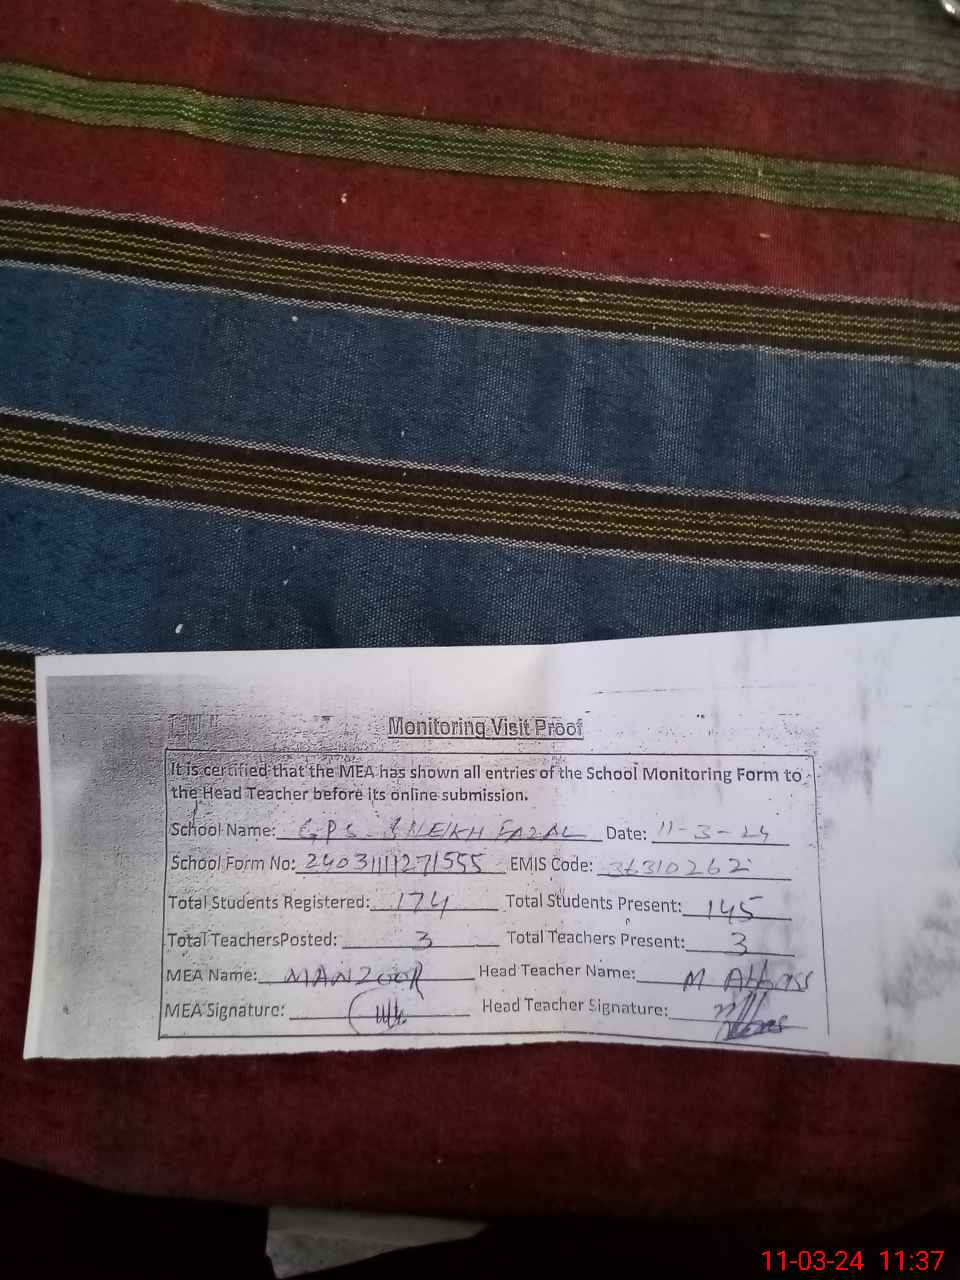 Monitoring Visit Proof
It is certified that the MEA has shown all entries of the School Monitoring Form to
the Head Teacher before its online submission.
School Name: GPS SHEIKH FAZAL Date: 11-3-24
School Form No: EMIS Code: 36310262
Total Students Registered: 174 Total Students Present: 145
Total TeachersPosted: 3 Total Teachers Present: 3
MEA Name: MANZOOR Head Teacher Name: M Abbass
MEA Signature: Head Teacher Signature:
11-03-24 11:37